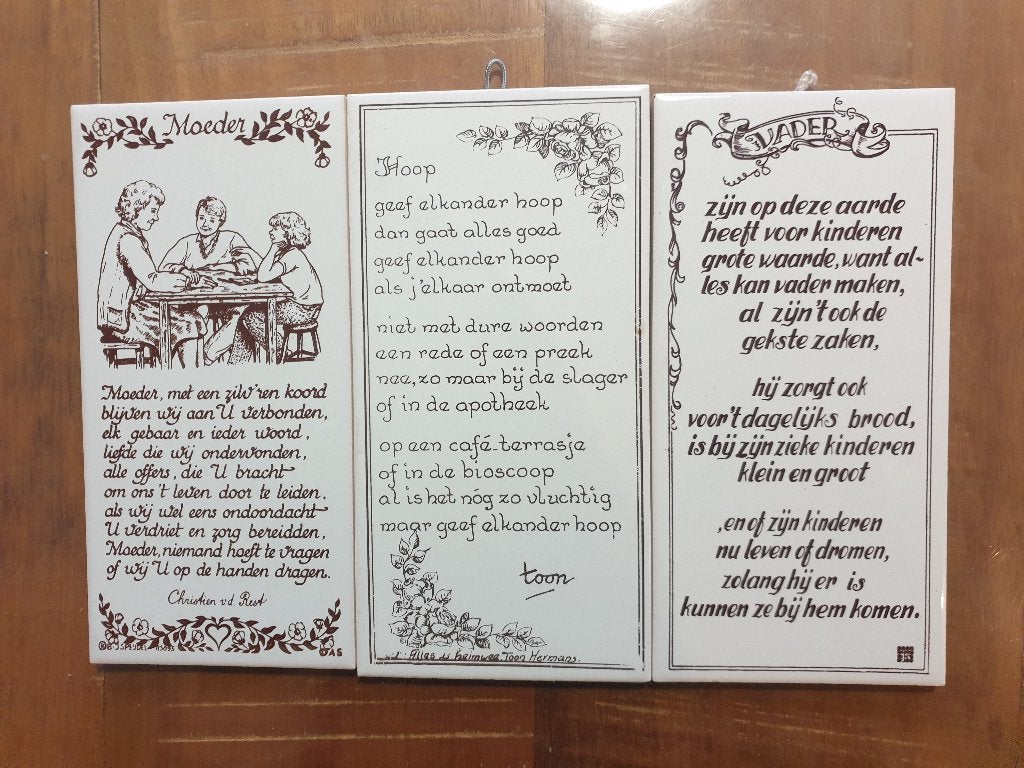 Moeder
Moeder, met een zilv'ren koord
blijven wij aan U verbonden,
elk gebaar en ieder woord,
liefde die wij ondervonden,
alle offers, die U bracht
om ons 't leven door te leiden,
als wij wel eens ondoordacht
U verdriet en zorg bereidden,
Moeder, niemand hoeft te vragen
of wij U op de handen dragen.
Christien v.d. Rest
DAS
Hoop
geef elkander hoop
dan gaat alles goed
geef elkander hoop
als j'elkaar ontmoet
niet met dure woorden
een rede of een preek
nee, zo maar bij de slager
of in de apotheek
op een café-terrasje
of in de bioscoop
al is het nóg zo vluchtig
maar geef elkander hoop
toon
Alles is heimwee, Toon Hermans.
VADER
zijn op deze aarde
heeft voor kinderen
grote waarde, want al~
les kan vader maken,
al zijn't ook de
gekste zaken,
hij zorgt ook
voor't dagelijks brood,
is bij zijn zieke kinderen
klein en groot
, en of zijn kinderen
nu leven of dromen,
zolang hij er is
kunnen ze bij hem komen.